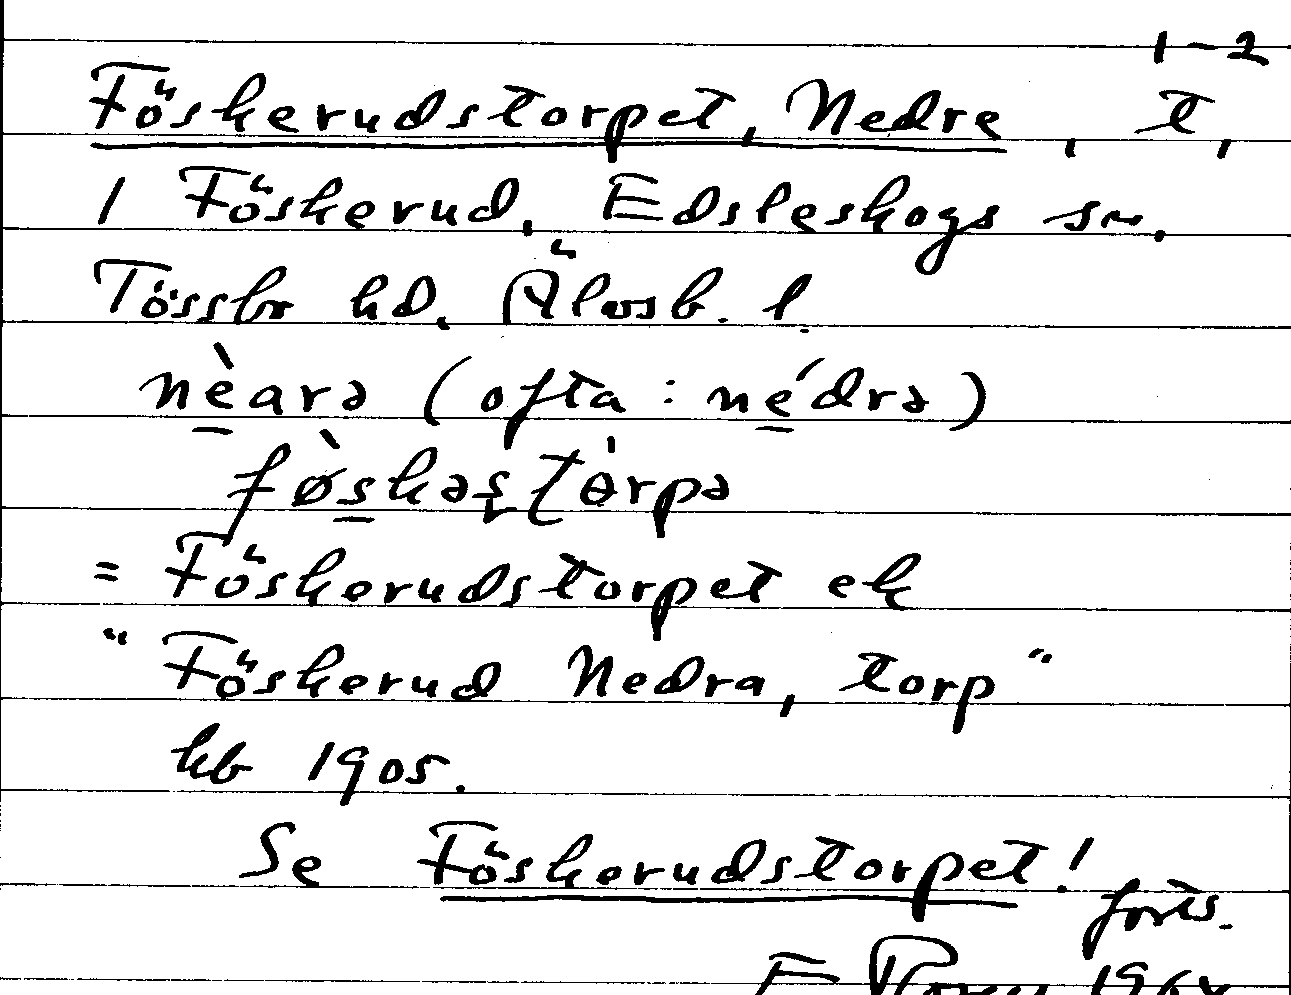 1-2
Föskerudstorpet, Nedre, t,
i Föskerud, Edsleskogs sn.
Tössbo hd. Älvsb. l.
nèarə (ofta: nédrə)
føskəştòrpə
= Föskerudstorpet ek
"Föskerud Nedra, torp"
kb 1905.
Se Föskerudstorpet!
forts.